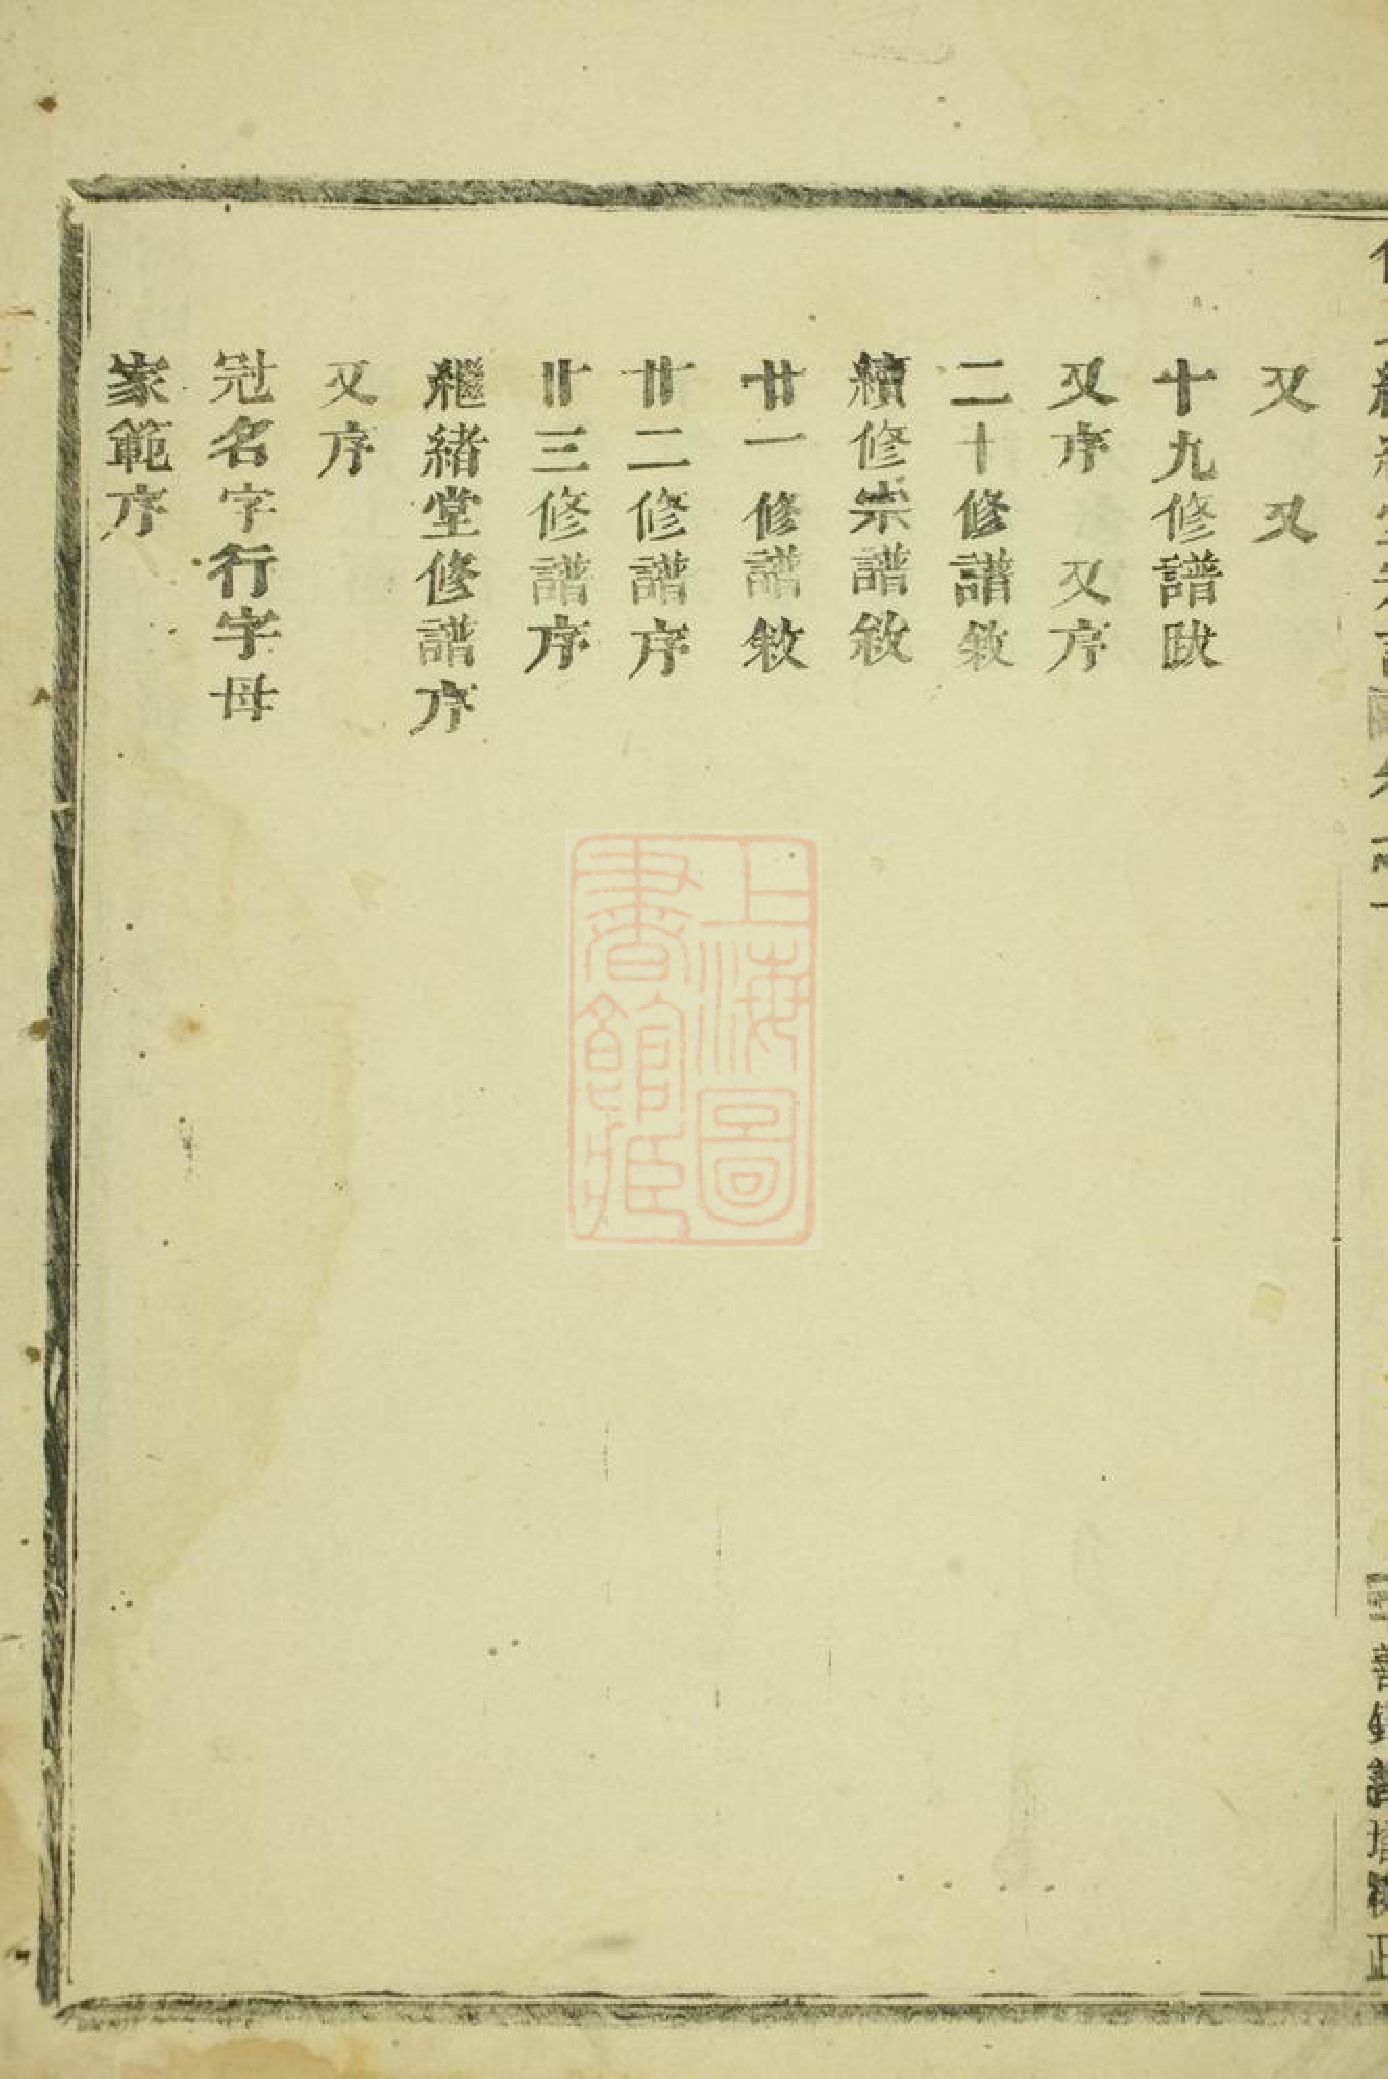 又 又
十九修譜跋
又序 又序
二十修譜敘
續修宗譜敘
廿一修譜敘
廿二修譜序
廿三修譜序
繼緒堂修譜序
又序
冠名字行字母
家範序
上海圖書館藏